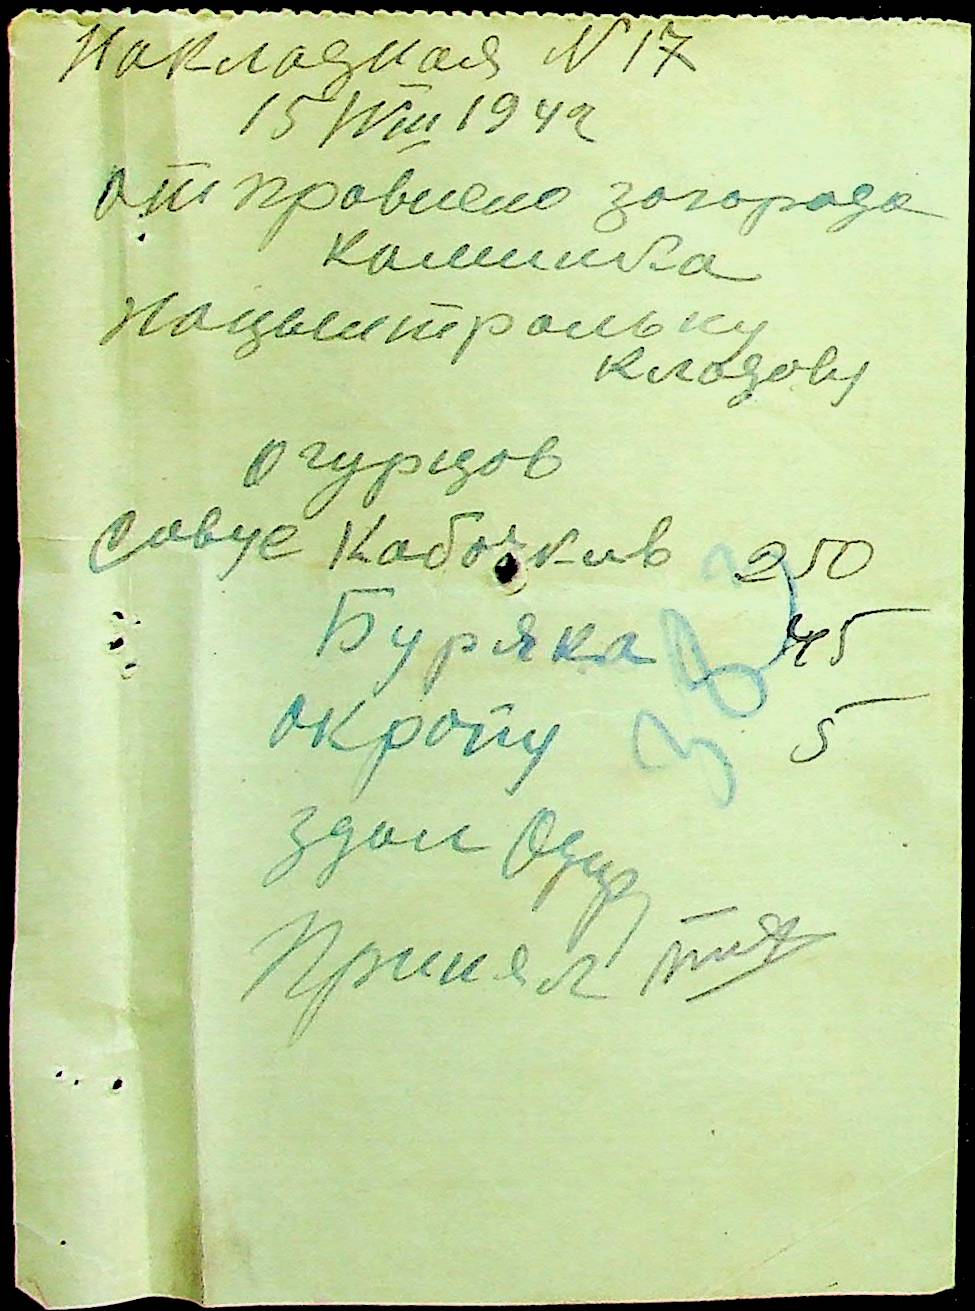 Накладная N 17
15 VIII 1942
отправлено загорода
Каминка
Нацынтральну
кладову
Огурцов
Савуе Кабочкив 250
Буряка 45
окропу 5
383
здал
Принял